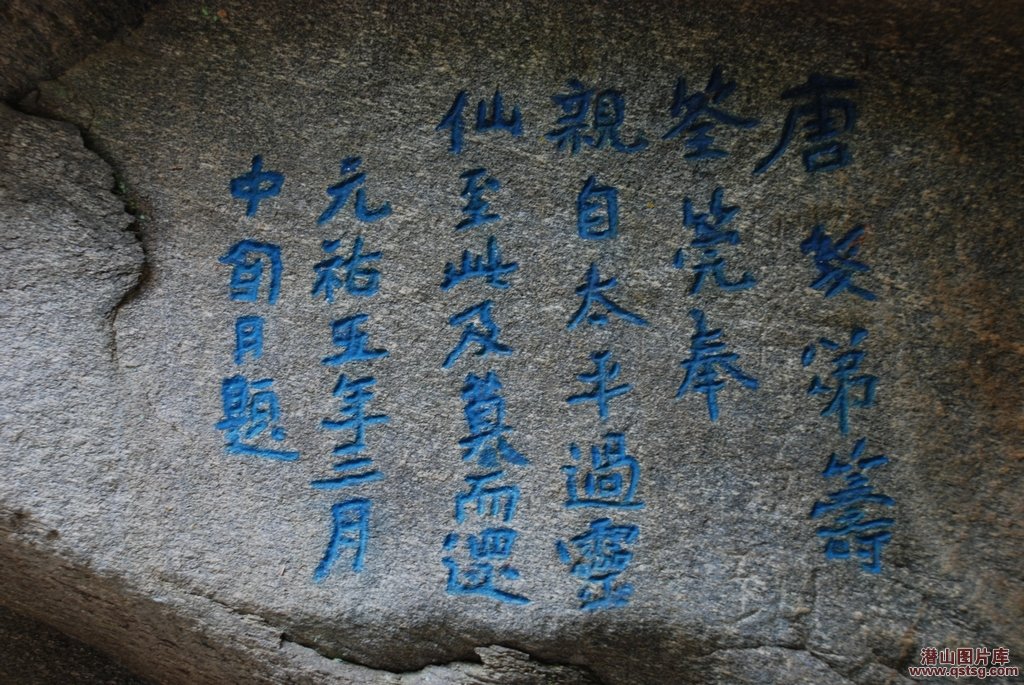 唐㢸弟籌
筌筦奉
親自太平過靈
仙至此及暮而還
元祐五年三月
中旬日題
潜山图片库
www.qstsg.com